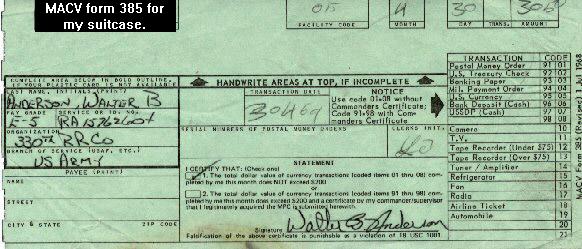 MACV form 385 for
my suitcase.
FACILITY CODE
M
DAY
TRANS.
AMOUNT
30
COMPLETE AREA BELOW IN BOLD OUTLINE,
IF YOUR PLASTIC CARD IS NOT AVAILABLE
HANDWRITE AREAS AT TOP, IF INCOMPLETE
LAST NAME, INITIALS (PRINT)
ANDERSON, WALTER B
PAY GRADE
SERVICE OR ID. NO.
E-5
ORGANIZATION
330th RRCo
BRANCH OF SERVICE (USAF, ETC.)
US ARMY
PAYEE (PRINT)
NAME
STREET
CITY & STATE
ZIP CODE
TRANSACTION DATE
NOTICE
Use code 01-08 without
Commanders Certificate;
Code 91-98 with Com-
manders Certificate.
SERIAL NUMBERS OF POSTAL MONEY ORDERS
CLERKS INIT.
STATEMENT
I CERTIFY THAT: (Check one)
1. The total dollar value of currency transactions (coded items 01 thru 08) com-
pleted by me this month does NOT exceed $200
or
2. The total dollar value of currency transactions (coded items 91 thru 98) com-
pleted by me this month exceed $200 and a certificate by my commander/supervisor
that I legitimately acquired the MPC is submitted herewith.
Signature Walter B Anderson
Falsification of the above certificate is punishable as a violation of 18 USC 1001.
TRANSACTION CODE
Postal Money Order 91 01
U.S. Treasury Check 92 02
Banking Paper 93 03
Mil. Payment Order 94 04
U.S. Currency 95 05
Bank Deposit (Cash) 96 06
USSDP (Cash) 97 07
98 08
Camera 10
T.V. 11
Tape Recorder (Under $75) 12
Tape Recorder (Over $75) 13
Tuner / Amplifier 14
Refrigerator 15
Fan 16
Radio 17
Airline Ticket 18
Automobile 19
20